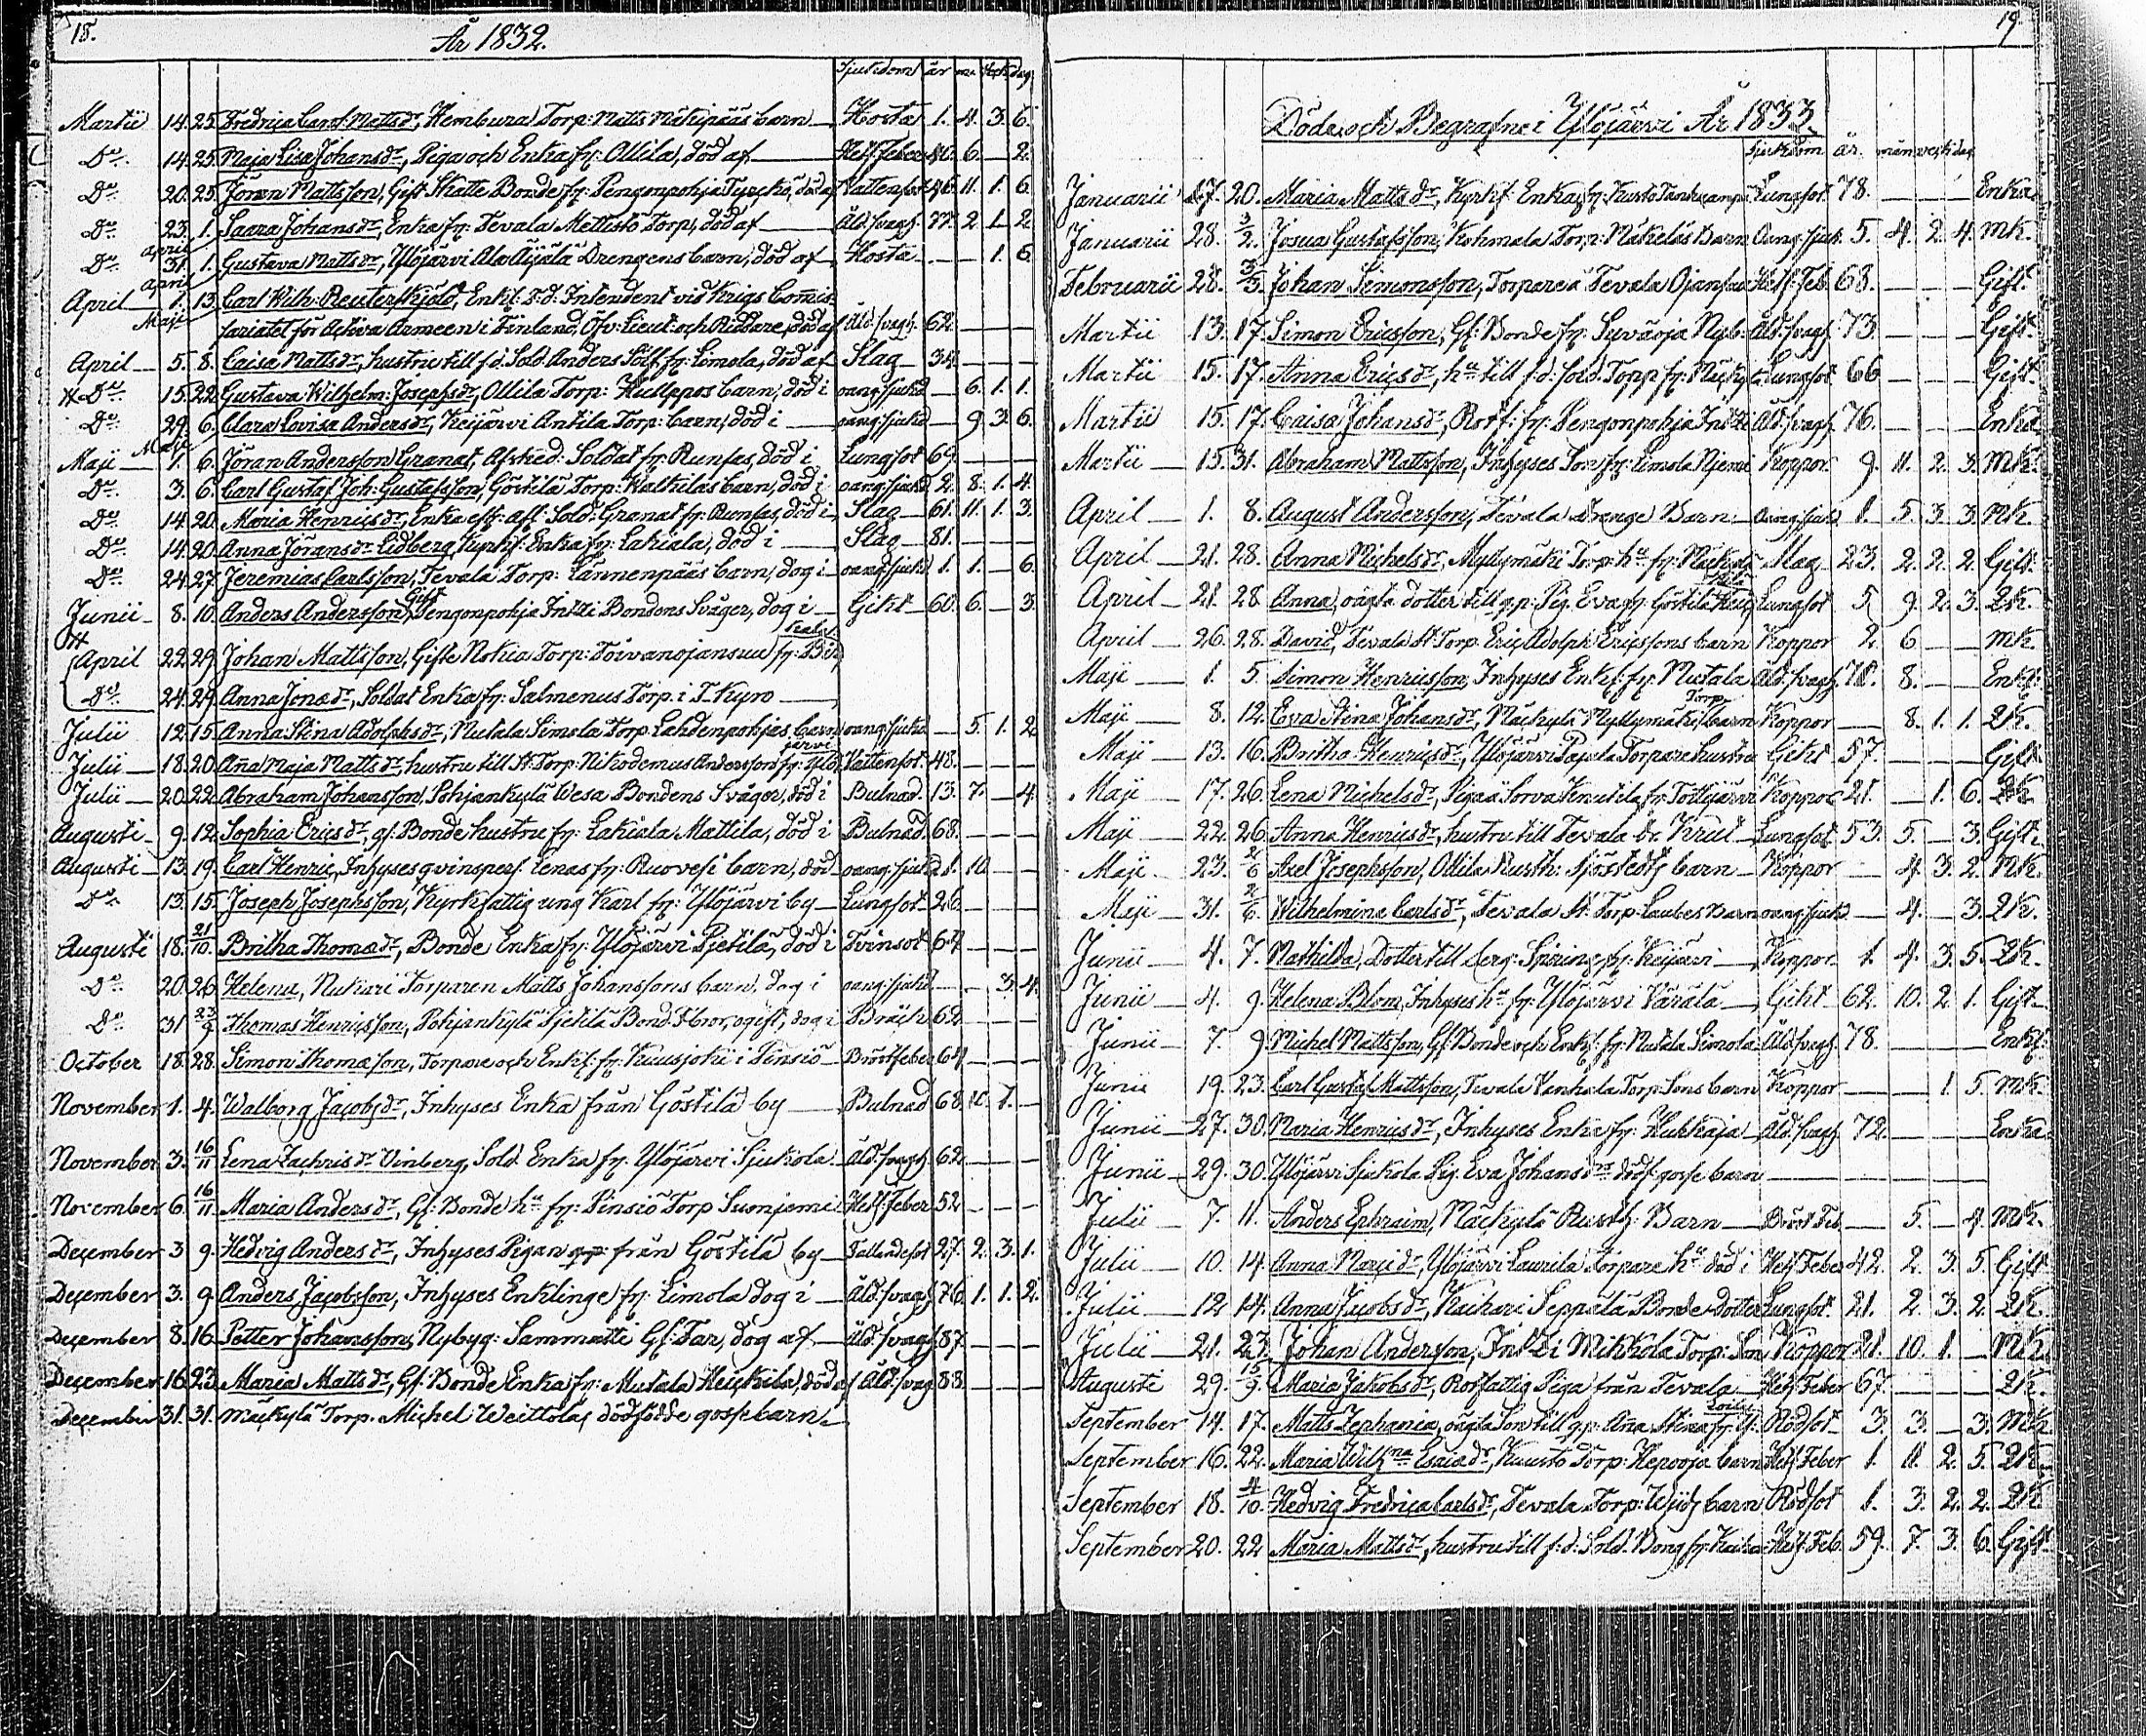 18.
År 1832.
Sjukdom år m. veck. dag
Martii 14. 25. Fredrica Carol. Mattsdr, Hembura Torp: Matts Mäkipääs barn Hosta 1. 4. 3. 6.
Do 14. 25. Maja Lisa Johansdr, Piga och Enka fr: Ollila, död af Hets. Feber 6. — 2.
Do 20. 25. Jöran Mattsson, Gift Skatte Bonde fr: Pengonpohja Tyrckö, död af Vattensot 46. 11. 1. 6.
Do 23. 1. April Saara Johansdr, Enka fr: Tevala Mettistö Torp, död af Åld. svagh. 77. 2. 1. 2
Do 31. 1. April Gustava Mattsdr, Ylöjärvi Ala Äijälä Drengens barn, död af Hosta — — 1. 6
April 1. 13. Carl Wilh: Reuterskjöld, Enkl: f. d. Intendent vid Krigs Com̄is-
Maji sariatet för Activa Armeen i Finland, Öfv: Lieut: och Riddare, död af Åld. svagh. 62. — — —
April 5. 8. Caisa Mattsdr, hustru till f.d. Sold. Anders Sölf fr: Limola, död af Slag 34. — — —
# Do 15. 22. Gustava Wilhelm: Josephsdr, Ollila Torp: Hulppos barn, död i oang. sjukd — 6. 1. 1.
Do 29. 6. Clara Lovisa Andersdr, Keijärvi Antila Torp: barn, död i oang. sjukd — 9. 3. 6.
Maji
Maji 1. 6. Jöran Andersson Granat, Afsked: Soldat fr: Runsas, död i Lungsot 69. — — —
Do 3. 6. Carl Gustaf Joh: Gustafsson, Göstilä Torp: Kalkilas barn, död i oang. sjukd 2. 8. 1. 4.
Do 14. 20. Maria Henricsdr, Enka eft: afl: Sold: Granat fr: Runsas, död i Slag 61. 11. 1. 3.
Do 14. 20. Anna Jöransdr Lidberg, Kyrkf: Enka fr: Lakiala, död i Slag 81. — — —
Do 24. 27. Jeremias Carlsson, Tevala Torp: Lännenpääs barn, dog i oang. sjukd 1. 1. — 6.
Junii 8. 10. Anders Andersson, Gift Pengonpohja Inkki Bondens Svåger, dog i Gikt 60. 6. — 3.
# April 22. 29. Johan Mattsson, Gifte Nokia Torp: Toivanojansuu fr:
Do 24. 29. Anna Jonædr, Soldat Enka fr: Salmenus Torp. i T. Kyro
Julii 12. 15. Anna Stina Adolphsdr, Mutala Simola Torp. Lahdenpohjas barn oang. sjukd — 5. 1. 2
Julii 18. 20. An̄a Maja Mattsdr, hustru till St: Torp: Nikodemus Andersson fr: Ylöjärvi Vattensot. 48. — — —
Julii 20. 22. Abraham Johansson, Pohjankylä Wesa Bondens Svåger, död i Bulnad. 13. 7. — 4.
Augusti 9. 12. Sophia Ericsdr, gl. Bonde hustru fr: Lakiala Mattila, död i Bulnad. 68. — — —
Augusti 13. 19. Carl Henric, Inhyses qvinspers. Lenas fr: Ruovesi barn, död oang. sjukd 1. 10. — —
Do 13. 15. Joseph Josephsson, Kyrkfattig ung Karl fr: Ylöjärvi by Lungsot. 26. — — —
Augusti 18. 21/10. Britha Thomædr, Bonde Enka fr: Ylöjärvi Pietilä, död i Tvinsot 64. — — —
Do 20. 26. Helena, Mutiari Torparen Matts Johanssons barn, dog i oang. sjukd — — 3. 4.
Do 31. 23/9. Thomas Henricsson, Pohjankylä Pietilä Bond. F. bror, ogift, dog i Bräck 62 — — —
October 18. 28. Simon Thomæson, Torpare och Enkl: fr: Kuusjoki i Pinsiö Bröstfeber 64 — — —
November 1. 4. Walborg Jacobsdr, Inhyses Enka från Göstilä by Bulnad 68. 10. 1. —
November 3. 16/11 Lena Zachrisdr Vinberg, Sold. Enka fr. Ylöjärvi Sjukola Åld. svagh. 62. — — —
November 6. 16/11. Maria Andersdr, Gl: Bonde hu fr: Pinsiö Torp Suonjemi Hets. Feber 52. — — —
December 3. 9. Hedvig Andersdr, Inhyses Pigan från Göstilä by Fallandesot 27. 2. 3. 1.
December 3. 9. Anders Jacobsson, Inhyses Enklinge fr: Limola dog i Åld. svagh 76. 1. 1. 2.
December 8. 16. Petter Johansson, Nybyg: Sammatti Gl. Far, dog af åld. svagh 87. — — —
December 16. 23. Maria Mattsdr, Gl: Bonde Enka fr: Mutala Heickilä, död af Åld. svag 88. — — —
December 31. 31. Mäckylä Torp. Michel Weittolas dödfödde gosse barn
19.
Döde och Begrafne i Ylöjärvi År 1833.
Sjukdom år. mån veck dag
Januarii 17. 20. Maria Mattsdr, Kyrkf: Enka fr: Lungsot 78. — — — Enka
Januarii 28. 3/2. Josua Gustafsson, Kohmala Torp: Mäkeläs Barn Oang. sjuk. 5. 4. 2. 4. MK.
Februarii 28. 3/3. Johan Simonsson, Torpare å Tevala Ojansuu Hets. Feb. 68. — — — Gift.
Martii 13. 17. Simon Ericsson, Gl: Bonde fr: Syväoja Nyb: Åld. svagh 73. — — — Gift.
Martii 15. 17. Anna Ericsdr, hu till f. d. Sold. Topp fr: Mäckylä Lungsot 66 — — — Gift.
Martii 15. 17. Caisa Johansdr, Rotf: fr: Pengonpohja Inkki Åld. svagh 76. — — — Enka
Martii 15. 31. Abraham Mattsson, Inhyses Son fr: Limola Niemi Koppor. 9. 11. 2. 3. MK.
April 1. 8. August Andersson, Tevala Drenge Barn Oang. sjukd 1. 5. 3. 3. MK
April 21. 28. Anna Michelsdr, Myllymäki Torp: hu fr: Mäckylä Mag 23. 2. 2. 2. Gift
April 21. 28 Anna, oägta dotter till qp: Pig. Eva fr: Göstilä Lungsot 5 9. 2. 3. QK.
April 26. 28. David, Tevala St. Torp. Eric Adolph Ericssons barn Koppor 2. 6 — — MK.
Maji 1. 5. Simon Henricsson, Inhyses Enkl: fr: Mutala Åld. svagh 78. 8. — — Enkl:
Maji 8. 12. Eva Stina Johansdr, Mäckylä Myllymäki Torp. barn Koppor — 8. 1. 1. QK.
Maji 13. 16. Britha Henricsdr, Ylöjärvi Papula Torpare hustru Gikt 57. — — — Gift
Maji 17. 26. Lena Michelsdr, Piga å Sorva Knutila fr: Tottijärvi Koppor 21. — 1. 6. QK
Maji 22. 26. Anna Henricsdr, hustru till Tevala dr. Krut Lungsot 53. 5. — 3. Gift.
Maji 23. 2/6 Axel Josephsson, Ollila Rusth: Sjöstedts barn Koppor — 4. 3. 2. MK.
Maji 31. 2/6. Wilhelmina Carlsdr, Tevala St. Torp: Laubes Barn oang. sjukd — 4. — 3. QK.
Junii 4. 7. Mathilda, Dotter till Serg: Spiring fr: Keijärvi Koppor 1. 4. 3. 5. QK.
Junii 4. 9 Helena Blom, Inhyses hu fr: Ylöjärvi Värälä Gikt 62. 10. 2. 1. Gift
Junii 7. 9. Michel Mattsson, Gl: Bonde och Enkl: fr: Mutala Simola Åld. svagh. 78. — — — Enkl:
Junii 19. 23. Carl Gustaf Mattsson, Tevala Vanhala Torp: Sons barn Koppor — — 1. 5. MK.
Junii 27. 30. Maria Henricsdr, Inhyses Enka fr: Hukkaja Åld. svagh 72. — — — Enka
Junii 29. 30. Ylöjärvi Sjukola Pig. Eva Johansdrs dödf. gosse barn — — — —
Julii 7. 11. Anders Ephraim, Mäckylä Rusth: Barn Bröst Feb. — 5. — 4. MK.
Julii 10. 14. Anna Maridr, Ylöjärvi Laurila Torpare hu död i Hets Feber 42. 2. 3. 5. Gift
Julii 12 14. Anna Jacobsdr, Kaihari Seppälä Bonde dotter Lungsot. 21. 2. 3. 2. QK
Julii 21. 23. Johan Anderson, Inkki Mikkola Torp: Son Koppor 21. 10. 1. — MK.
Augusti 29. 15/9. Maria Jakobsdr, Rotfattig Piga från Tevala Hets Feber 67. — — — QK.
September 14. 17. Matts Zephania, oägta Son till qp: An̄a Stina fr: Rödsot 3. 3. — 3. MK
September 16. 22. Maria Wilhna Esaiædr, Kuusto Torp: Hepooja barn Hets Feber 1. 11. 2. 5. QK.
September 18. 4/10. Hedvig Fredrica Carlsdr, Tevala Torp: barn Rödsot 1. 3. 2. 2. QK
September 20. 22 Maria Mattsdr, hustru till f. d. Sold. Bong fr: Hets Feb. 59. 7. 3. 6. Gift.